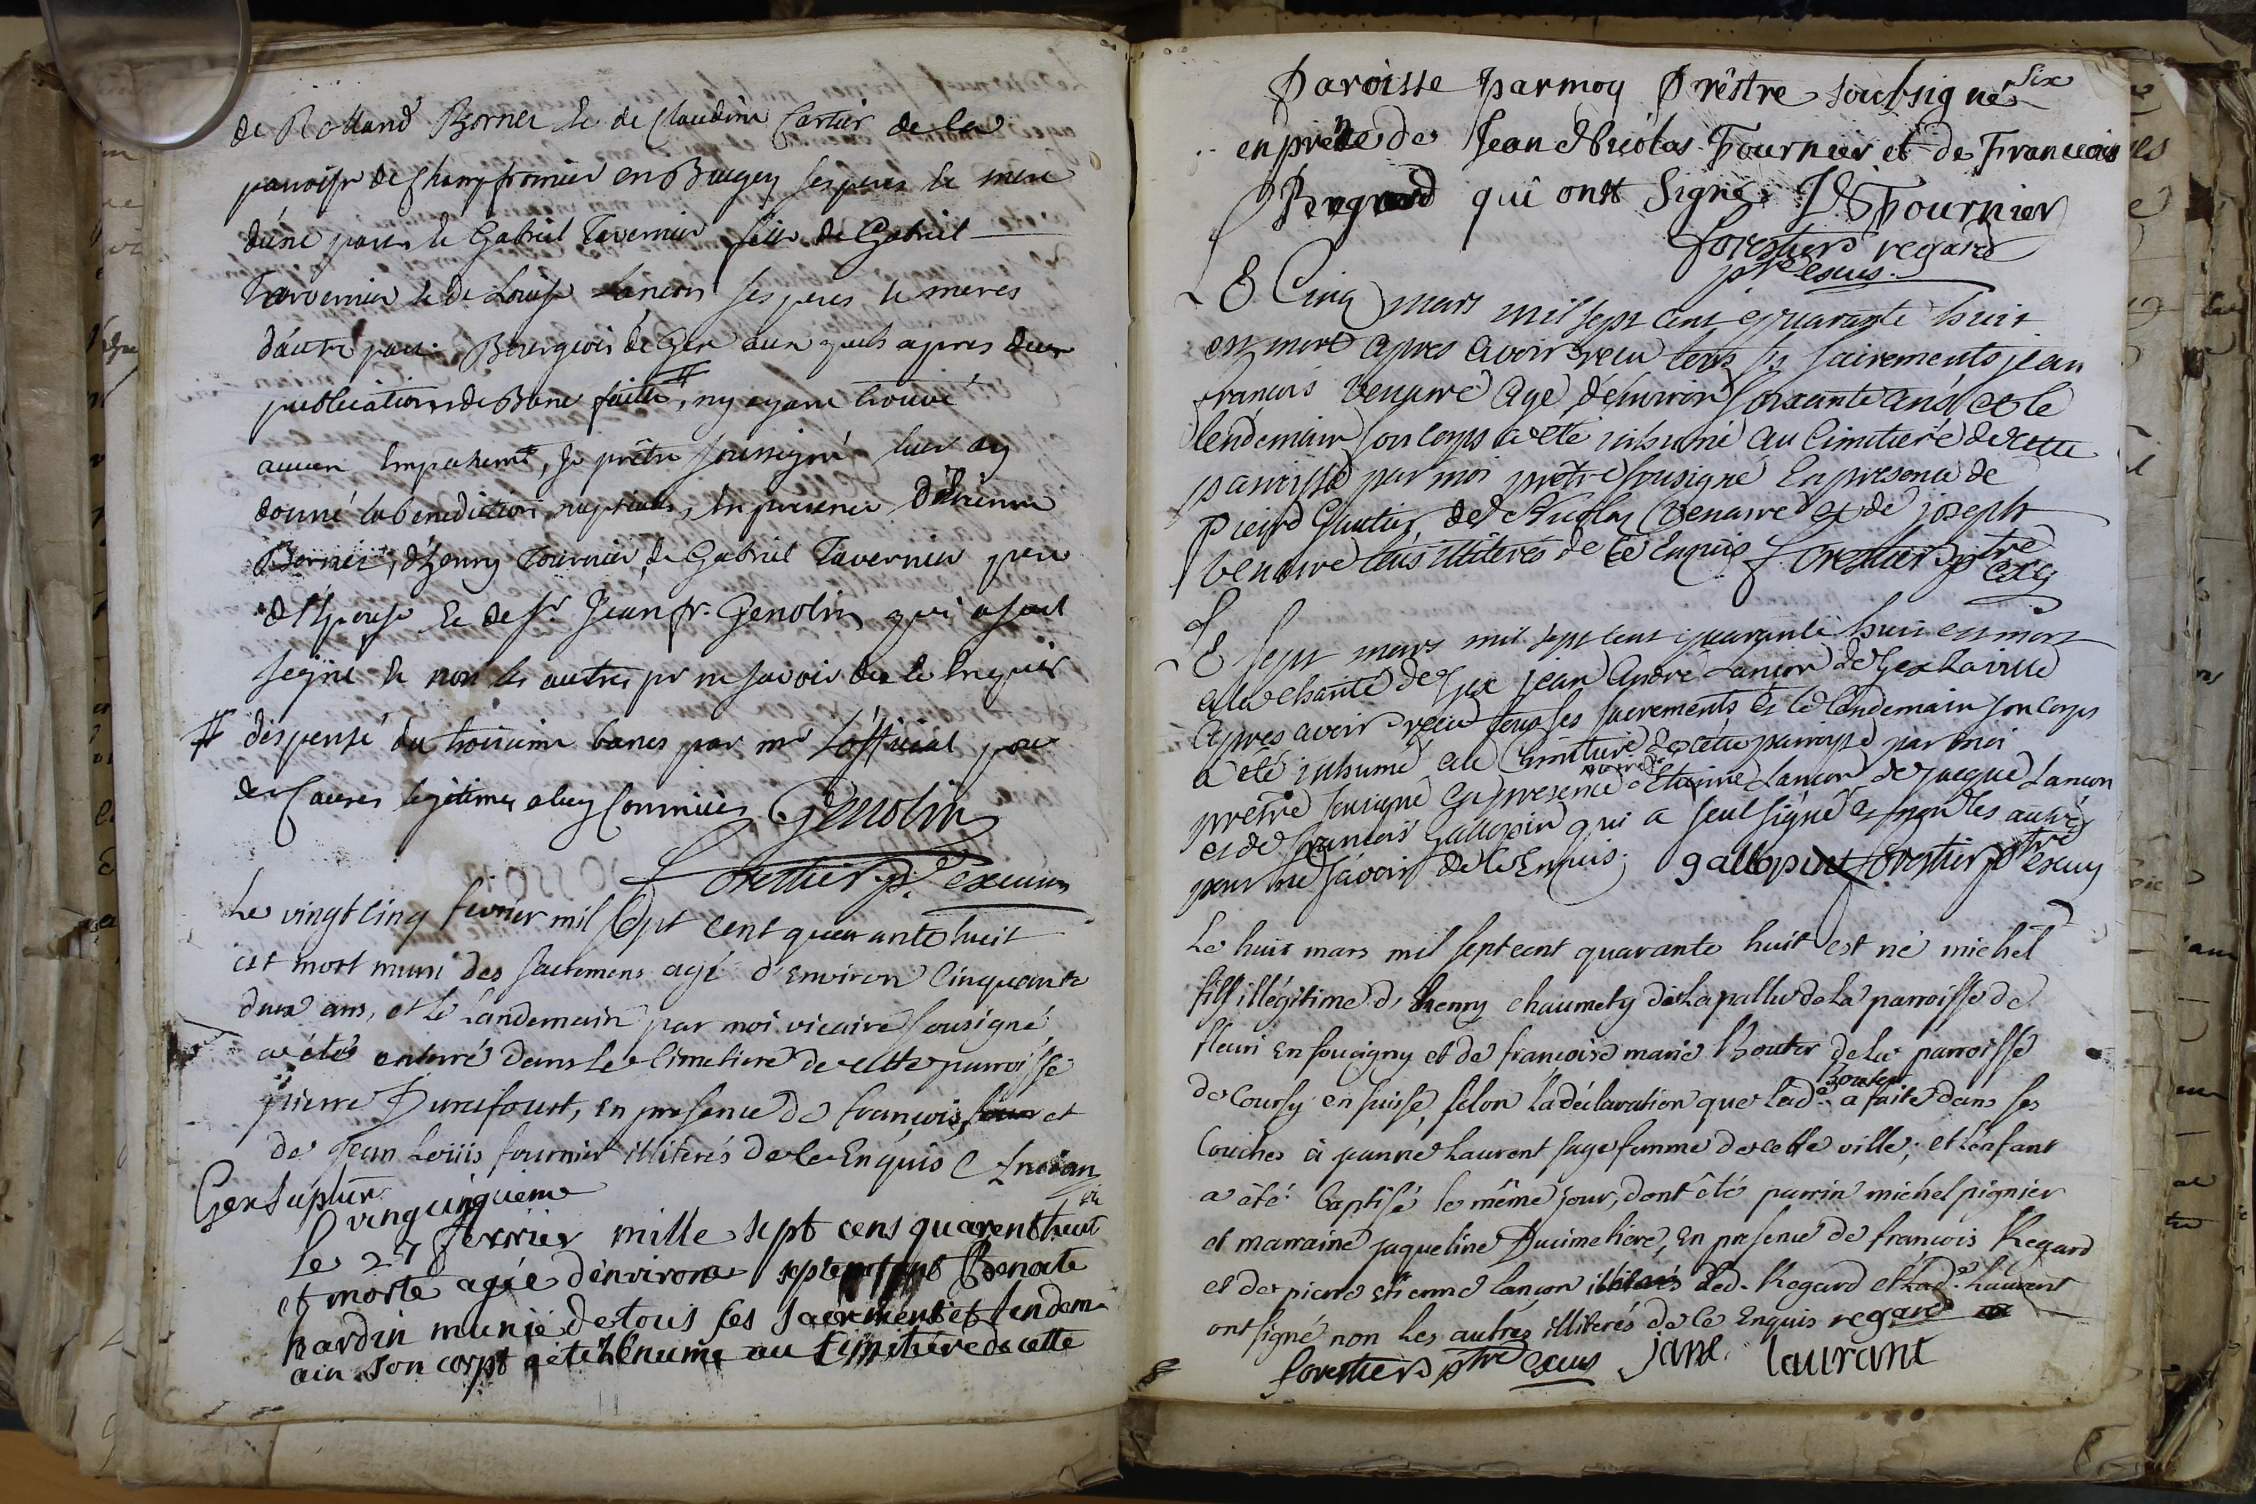 de Rolland Bornet & de Claudine Cartier de la
parroisse de Champfromier en Bugey ses peres & mere
d'une part & Gabriel Tavernier fille de Gabriel
Tavernier & de Louise Lançon ses peres & meres
d'autre part Bourgeois de Gex aux quels apres deux
publications de Bans faites, ny ayant trouvé
aucun Empechement, Je prêtre soussigné leur ay
donné la benediction nuptiale, En presence d'Etienne
Bornet, d'henry Tournier, de Gabriel Tavernier pere
de l'Epouse & de Sr Jean fr. Genolin qui a seul
signé & non les autres pr ne savoir de ce Enquis
# dispensé du troisieme bancs par mr L'official pour
des Causes legitimes a luy Connües Genolin
Forestier pr
Le vingt cinq fevrier mil sept cent quarante huit
est mort muni des sacremens agé d'Environ Cinquante
deux ans, et le Landemain par moi vicaire sousigné
a étés enterré dans le Cimetiere de cette parroisse
pierre Durafourt, en presence de françois et
de Jean Loüis fournier illiterés de ce Enquis
Gex Sepult
vingcinquieme
Le 27 ferrier mille sept cens quarent huit
et morte agée d'environe Benoite
hardin munie de tous ses Sacrements et lendem
ain son corpt a été Inhumé au Cimitiére de cette
Six
Paroisse parmoy Prêstre soubsigné
en prnce de Jean Nicolas Fournier et de Francois
Regard qui ont Signé Fournier
forestier regard
ptre
Le Cinq mars mil sept cent quarante huit
est mort apres avoir receu tous ses sairements jean
françois Venarre age denviron soixante ans et le
lendemain son corps a eté inhumé au Cimitieré de cette
parroisse par moi prêtre sousigné En presence de
pierre Gautier de Nicolas Venarre et de joseph
Venarre tous illiteres de ce Enquis Forestier ptre
Le sept mars mil sept cent quarante huit est mort
a la charité de Gex jean Andre Lançon de Gex la ville
apres avoir receu tous ses sacrements et le Landemain son corps
a eté inhumé au Cimitiere de cette parroisse par moi
pretre sousigné en presence d'Etienne Lancon de Jacque Lancon
et de francois Gallopin qui a seul signé et non les autres
pour ne sávoir de ce Enquis. gallopin forestier ptre
Le huit mars mil sept cent quarante huit est né michel
fils illégitime d'henry chaumety de Lapallud de La parroisse de
fleuri En foucigny et de françoise marie Bouter de La parroisse
de Coursy en suisse, selon la déclaration que Lad.e Bouter a faite dans ses
Couches à jeanne Laurent sage femme de cette ville; et l'enfant
a été baptisé le même jour, dont été parrin michel pignier
et marraine jaqueline Ducimetiere, En presence de francois Regard
et de pierre Etienne Lançon Led. Regard et Lad.e Laurent
ont signé non Les autres illiterés de ce Enquis regard
forestier ptre jane laurant